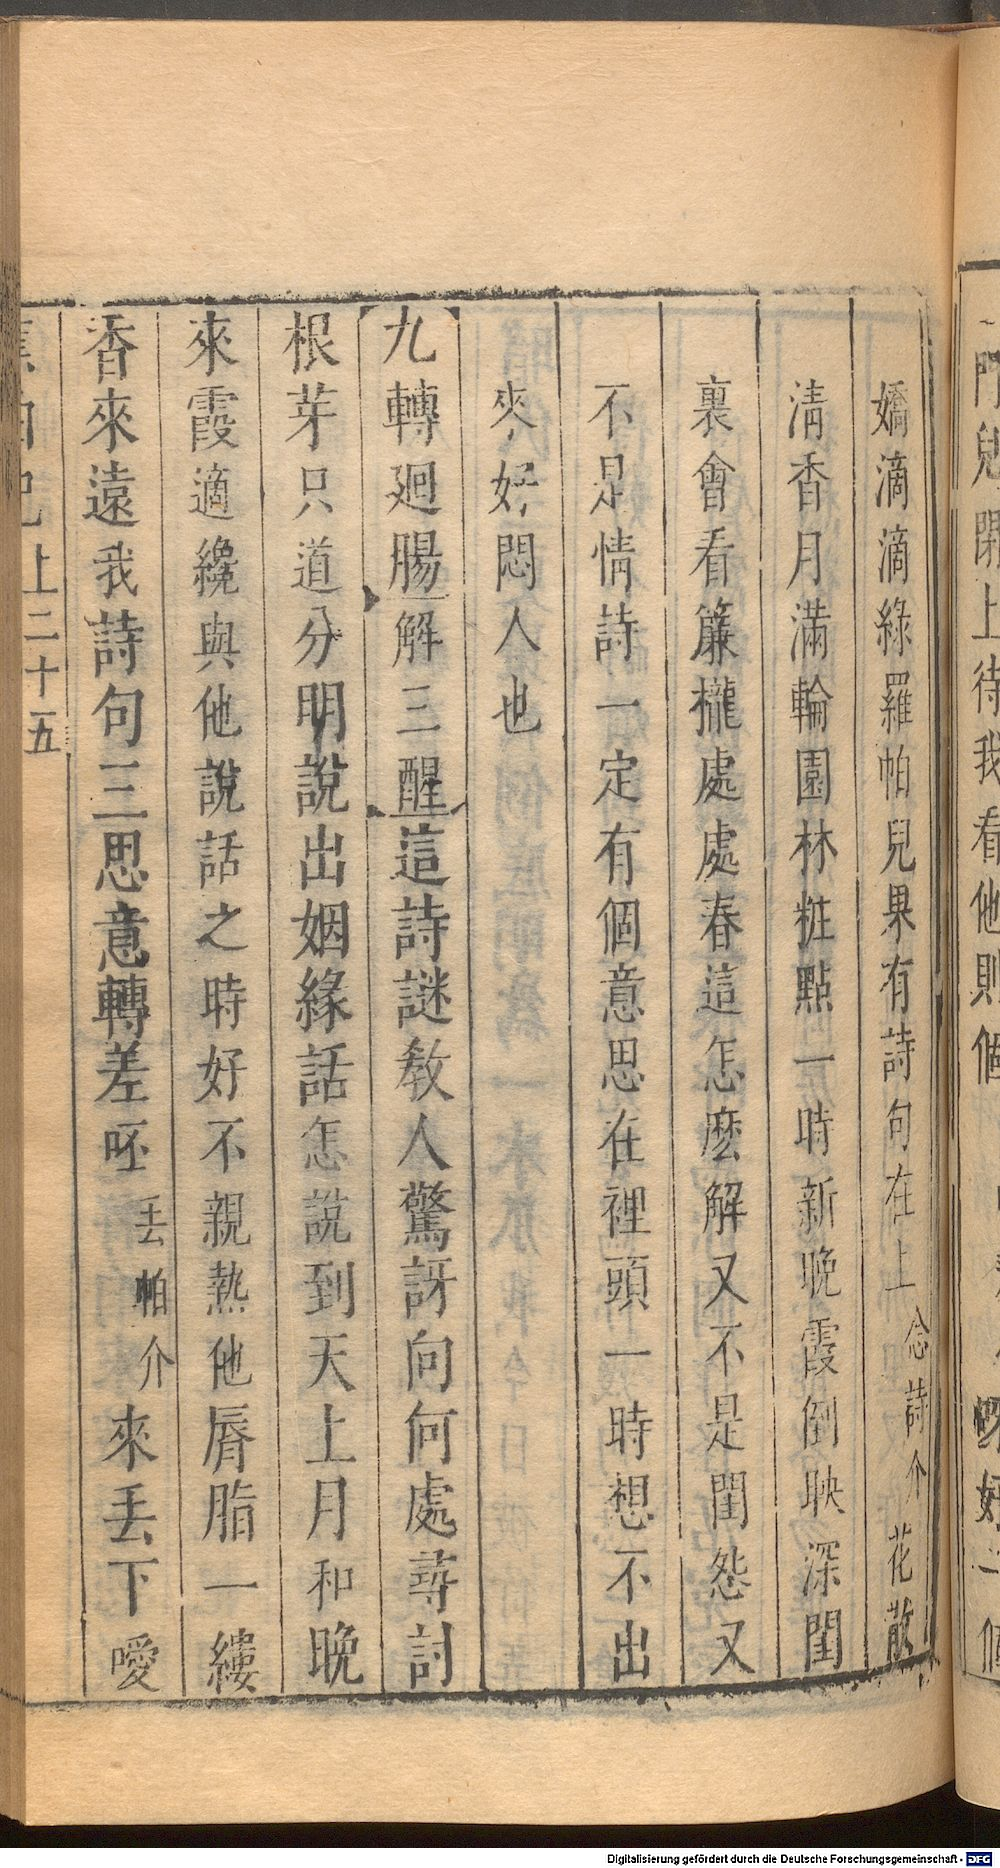 門兒閉上待我看他則個
嬌滴滴綠羅帕兒果有詩句在上念詩介花散
淸香月滿輪園林粧點一時新晚霞倒映深閨
裏會看簾攏處處春這怎麽解又不是閨怨又
不是情詩一定有個意思在裡頭一時想不出
來好悶人也
【九轉廻腸】解三醒這詩謎敎人驚訝向何處尋討
根芽只道分明說出姻緣話怎說到天上月和晚
來霞適纔與他說話之時好不親熱他唇脂一縷
香來遠我詩句三思意轉差呸丢帕介來丢下噯
帕記上二十五
Digitalisierung gefördert durch die Deutsche Forschungsgemeinschaft - DFG